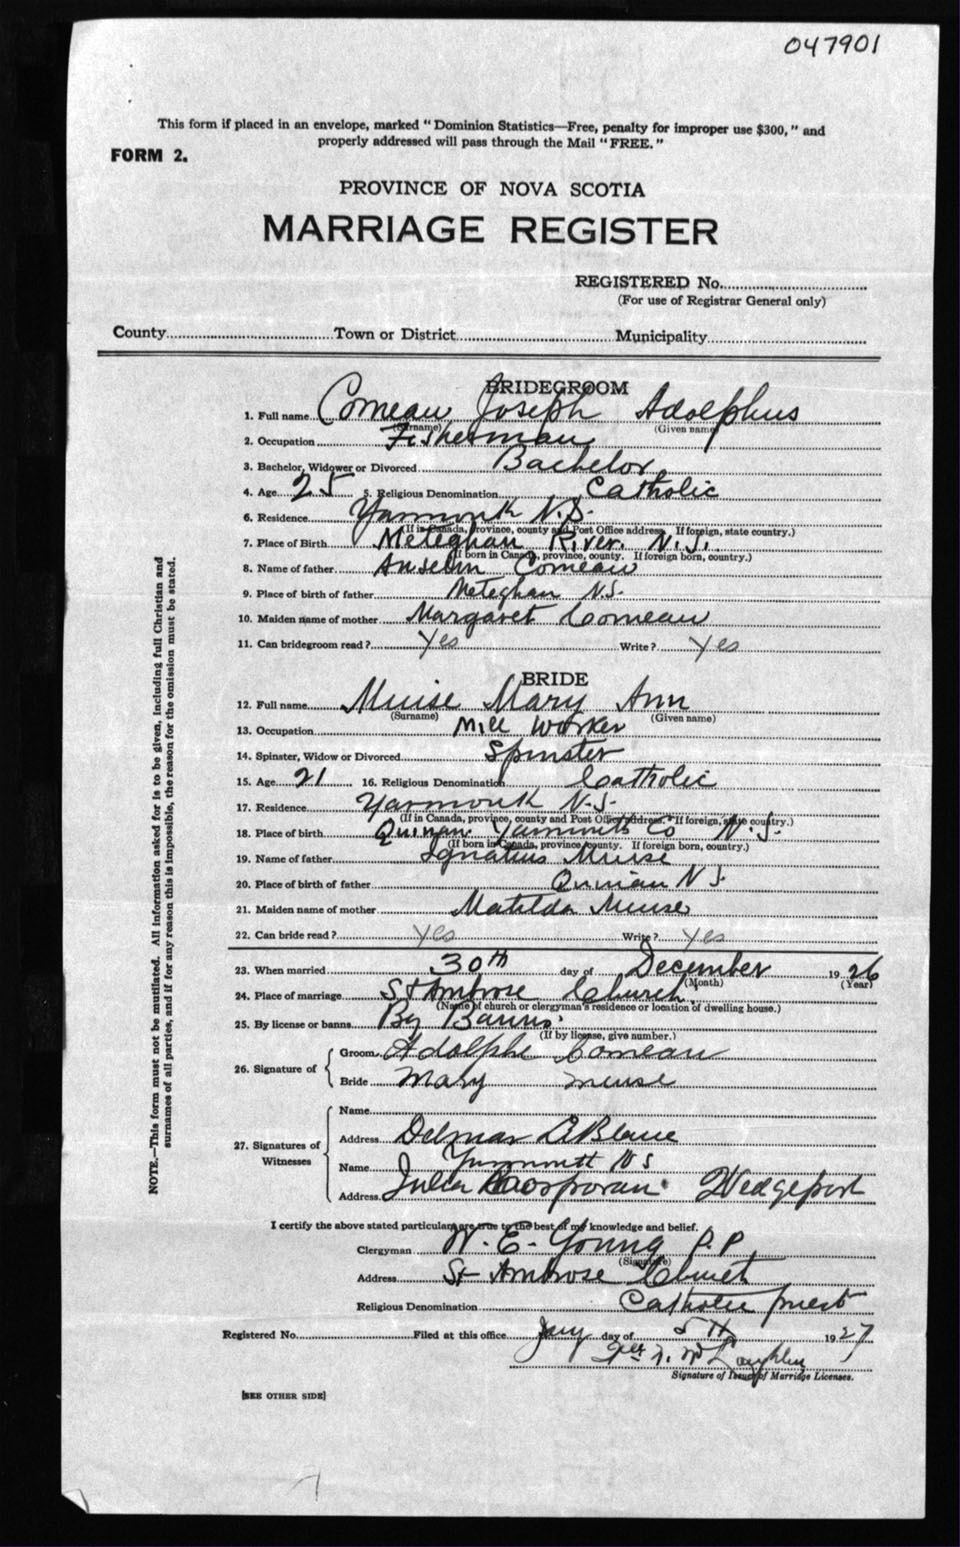 047901
This form if placed in an envelope, marked "Dominion Statistics—Free, penalty for improper use $300," and
properly addressed will pass through the Mail "FREE."
FORM 2.
PROVINCE OF NOVA SCOTIA
MARRIAGE REGISTER
REGISTERED No.
(For use of Registrar General only)
County Town or District Municipality
BRIDEGROOM
1. Full name Comeau Joseph Adolphus
(Surname) (Given name)
2. Occupation Fisherman
3. Bachelor, Widower or Divorced Bachelor
4. Age 25 5. Religious Denomination Catholic
6. Residence Yarmouth N.S.
(If in Canada, province, county and Post Office address. If foreign, state country.)
7. Place of Birth Meteghan River. N.S.
(If born in Canada, province, county. If foreign born, country.)
8. Name of father Anselm Comeau
9. Place of birth of father Meteghan N.S.
10. Maiden name of mother Margaret Comeau
11. Can bridegroom read? Yes Write? Yes
BRIDE
12. Full name Muise Mary Ann
(Surname) (Given name)
13. Occupation Mill Worker
14. Spinster, Widow or Divorced Spinster
15. Age 21 16. Religious Denomination Catholic
17. Residence Yarmouth N.S.
(If in Canada, province, county and Post Office address. If foreign, state country.)
18. Place of birth Quinan Yarmouth Co N.S.
(If born in Canada, province/county. If foreign born, country.)
19. Name of father Ignatius Muise
20. Place of birth of father Quinan N S.
21. Maiden name of mother Matilda Muise
22. Can bride read? Yes Write? Yes
23. When married 30th day of December 1926
(Month) (Year)
24. Place of marriage St Ambrose Church.
(Name of church or clergyman's residence or location of dwelling house.)
25. By license or banns By Banns.
(If by license, give number.)
26. Signature of
Groom Adolphe Comeau
Bride Mary Muse
27. Signatures of Witnesses
Name
Address Delmar LeBlanc
Name Yarmouth N S
Address Julia Wedgeport
I certify the above stated particulars are true to the best of my knowledge and belief.
Clergyman W. E. Young P.P.
(Signature)
Address St Ambrose Church
Religious Denomination Catholic priest
Registered No. Filed at this office Jany day of 5th 1927
Signature of Issuer of Marriage Licenses.
[SEE OTHER SIDE]
NOTE.—This form must not be mutilated. All information asked for is to be given, including full Christian and
surnames of all parties, and if for any reason this is impossible, the reason for the omission must be stated.